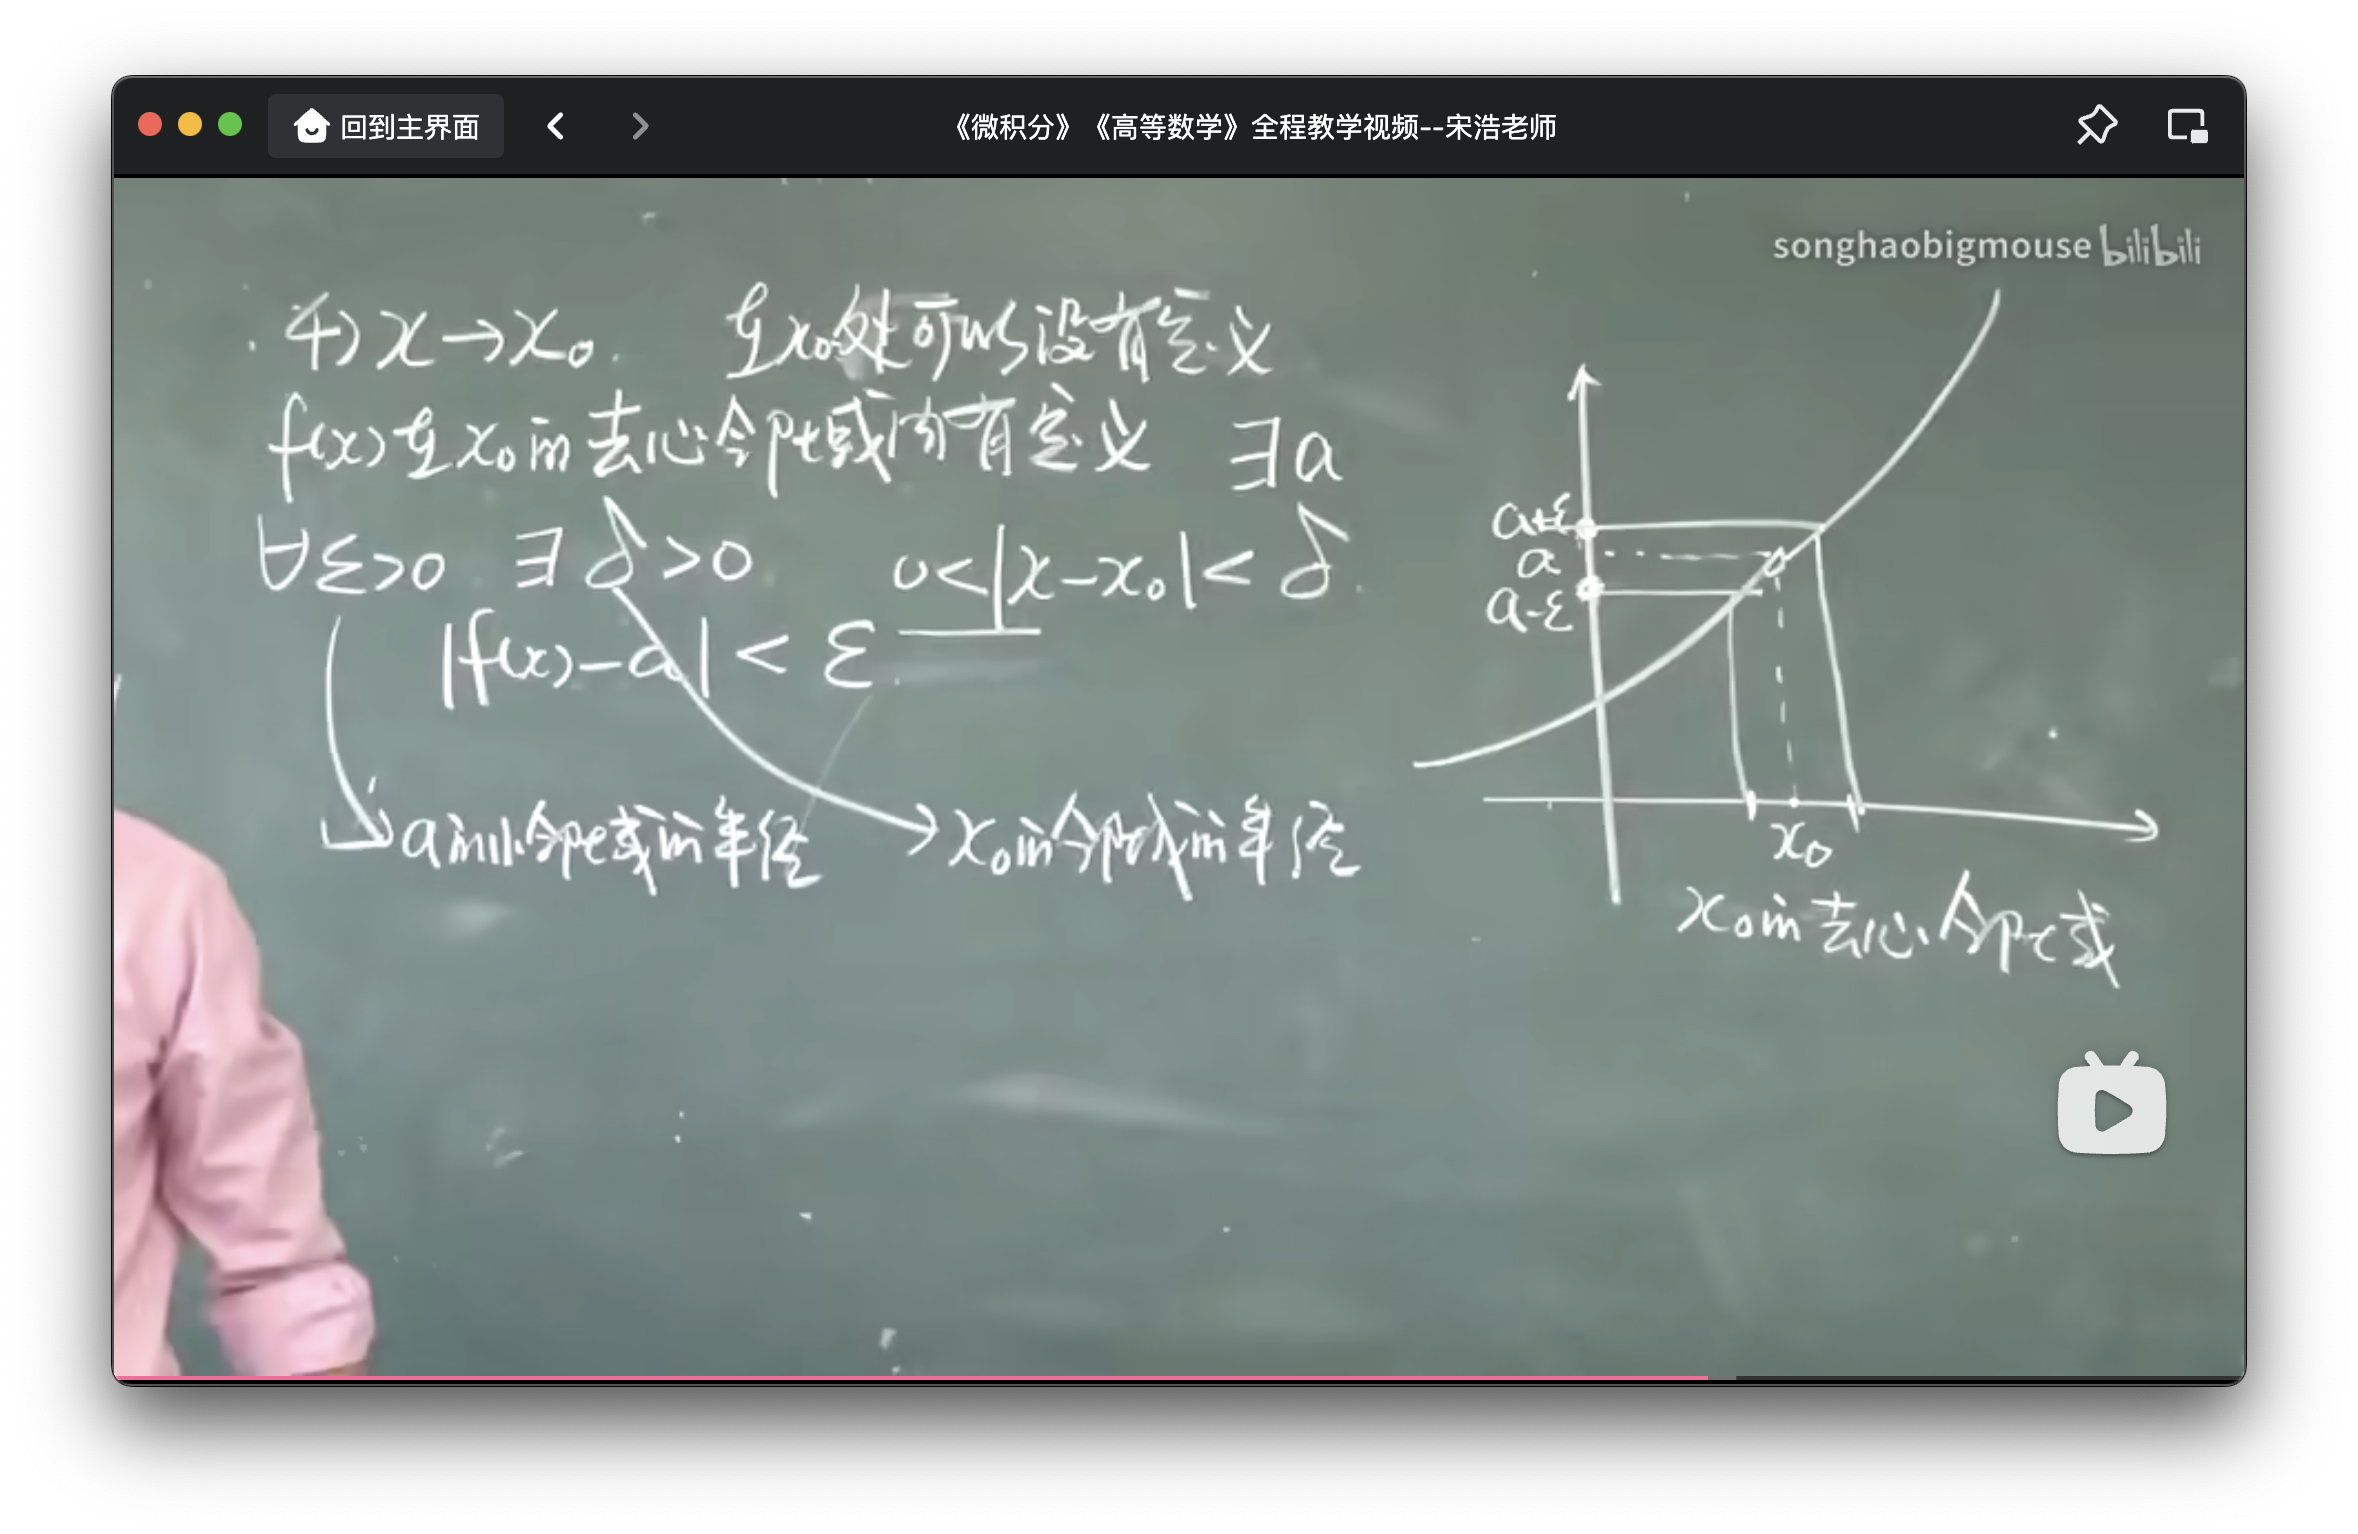 回到主界面
《微积分》《高等数学》全程教学视频--宋浩老师
songhaobigmouse bilibili
4) x→x₀. 在x₀处可以没有定义
f(x)在x₀的去心邻域内有定义 ∃a
∀ε>0 ∃δ>0 0<|x-x₀|<δ.
|f(x)-a|<ε
a的小邻域的半径 x₀的邻域的半径
a+ε
a
a-ε
x₀
x₀的去心邻域